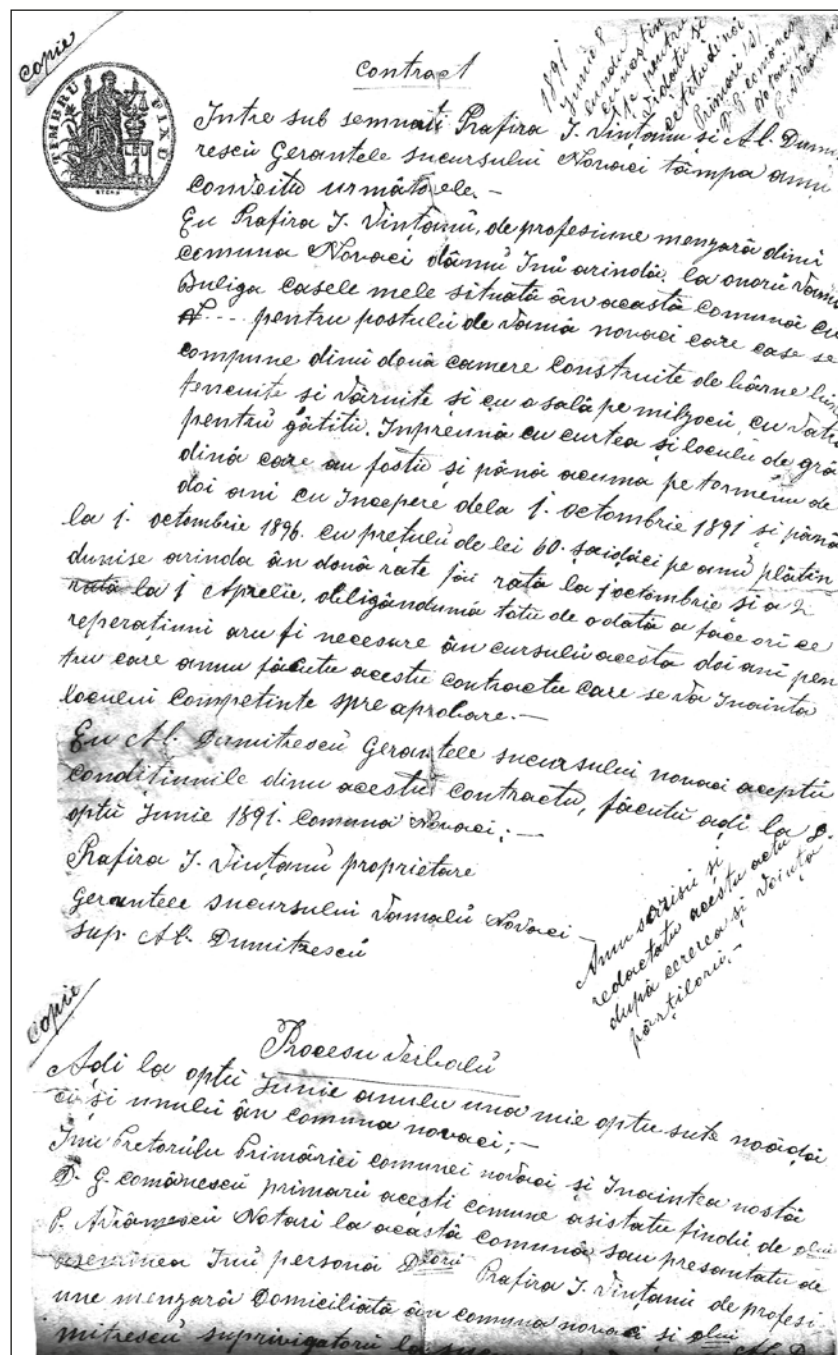 copie
TIMBRU FIXD
LEU
1
1891
Junie 8
contract
Intre sub semnați Prafira I. Vințanu si Al. Dumi
rescu Gerantele sucursului Novaci tâmpa amu
conveitu urmâtorele.-
Eu Prafira I. Vințanŭ, de profesiune mengară dinŭ
comuna Novaci dâmŭ Inŭ arindă, la onorŭ Vama
Buliga casele mele situată ân această comună cu
N---- pentru postulŭ de Vamă novaci care case se
compune dinŭ două camere construite de bârne
tencuite si vâruite si cu o sală pe milzocŭ, cu Vatra
pentrŭ gâtitŭ. Inpreună cu curtea și loculŭ de grâ
dină care au fostŭ si până acuma pe termenu de
doi ani cu Incepere dela 1. octombrie 1891 și până
la 1. octombrie 1896. cu prețulŭ de lei 60. șaidăci pe anŭ plătin
dunise arinda ân două rate Iăi rată la 1 octombrie si a 2
rată la 1 Aprelie, obligândumă totu de odată a face ori ce
reperațiuni aru fi necesare ân cursulŭ acesta doi ani pen
tru care amu făcutu acestŭ contractu care se va Inainta
loculŭi competinte spre aprobare.-
Eu Al. Dumitrescŭ Gerantele sucursului novaci aceptŭ
conditiunile dinu acestŭ contractu, făcutu adi la 8.
optŭ Junie 1891. comuna Novaci;-
Prafira I. Vințanŭ proprietare
Gerantele sucursului Vamalŭ Novaci-
sup. Al. Dumitrescŭ
Amu scrisŭ și
redactatu acestu actu
după cererea și voința
părților.-
copie
Procesu Verbalŭ
Adi la optŭ Junie anulu una mie optu sute noădăi
ci și unului ân comuna novaci;-
Inŭ Pretorulu Primăriei comunei novaci și Inaintea nostă
D. G. comănescŭ primarŭ acesti comune asistatu findŭ de
P. Avrămescŭ Notari la această comună sau presantatu de
aseminea Inŭ personă Prafira I. Vințanŭ de profesi
une mengară Domiciliată ân comuna novaci și
mitrescŭ suprivigatorŭ la